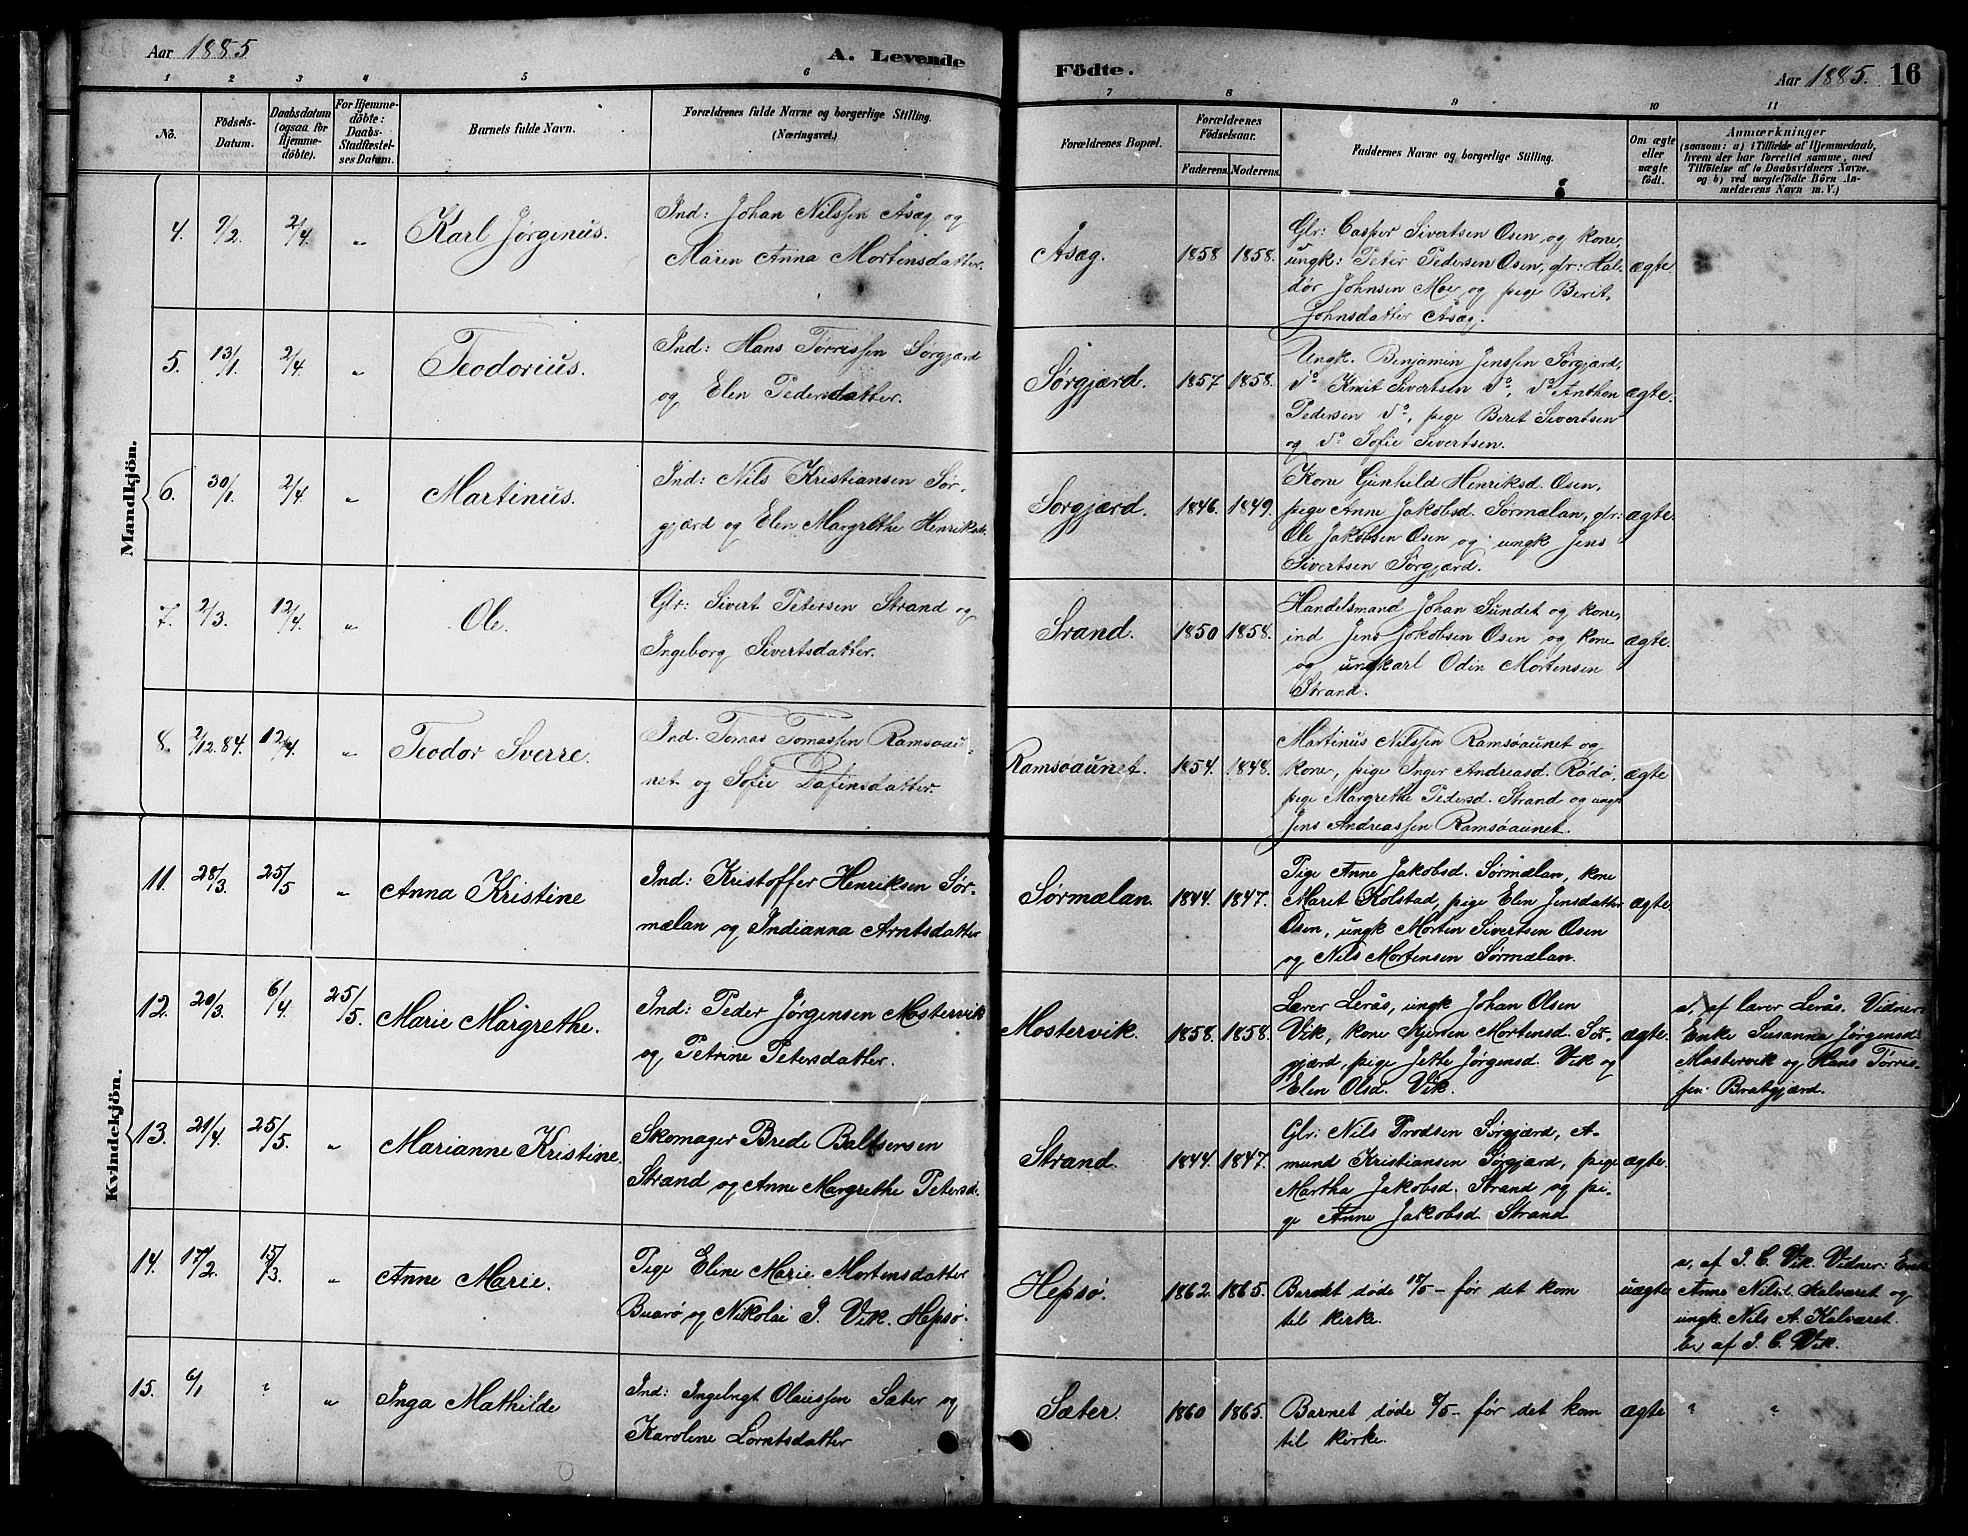 Aar 1885
A. Levende
Födte.
Aar 1885.
16
1 2 3 4 5 6 7 8 9 10 11
No.
Födsels-
Datum.
Daabsdatum
(ogsaa for
Hjemme-
döbte).
For Hjemme-
döbte:
Daabs-
Stadfæstel-
ses Datum.
Barnets fulde Navn.
Forældrenes fulde Navne og borgerlige Stilling.
(Næringsvei.)
Forældrenes Bopæl.
Forældrenes
Födselsaar.
Faderens. Moderens.
Faddernes Navne og borgerlige Stilling.
Om ægte
eller
uægte
födt.
Anmærkninger
(saasom: a) i Tilfælde af Hjemmedaab,
hvem der har forrettet samme, med
Tilföielse af to Daabsvidners Navne.
og b) ved uægtefödte Börn An-
melderens Navn m. V.)
Mandkjön.
4. 9/2 2/4. „ Karl Jørginus.
Ind: Johan Nilssen Åsæg og
Maren Anna Mortensdatter.
Åsæg. 1858 1858.
Glr: Casper Sivertsen Osen og kone,
ungk: Peter Pedersen Osen, glr: Hal-
dor Johnsen Moe og pige Berit
Johnsdatter Åsæg.
ægte.
5. 13/1. 2/4. „ Teodorius.
Ind: Hans Tørrissen Sørgjærd
og Elen Pedersdatter.
Sørgjærd. 1857 1858.
Ungk. Benjamin Jenssen Sørgjærd,
do Knut Sivertsen do, do Anthon
Pedersen do, pige Beret Sivertsen
og do Sofie Sivertsen.
ægte.
6. 30/1. 2/4 „ Martinus.
Ind: Nils Kristiansen Sør-
gjærd og Elen Margrethe Henriksd.
Sørgjærd. 1846. 1849.
Kone Gunhild Henriksd. Osen,
pige Anne Jakobsd. Sørmælan, glr:
Ole Jakobsen Osen og ungk Jens
Sivertsen Sørgjærd.
ægte.
7. 2/3. 12/4. „ Ole.
Glr: Sivert Petersen Strand og
Ingeborg Sivertsdatter.
Strand. 1850 1858.
Handelsmand Johan Sundet og kone,
ind Jens Jakobsen Osen og kone
og ungkarl Odin Mortensen
Strand.
ægte.
8. 2/12.84. 12/4. „ Teodor Sverre.
Ind. Tomas Tomassen Ramsøau-
net og Sofie Dafinsdatter.
Ramsøaunet. 1854. 1848.
Martinus Nilssen Ramsøaunet og
kone, pige Inger Andreasd. Rødø,
pige Margrethe Pedersd. Strand og ungk
Jens Andreassen Ramsøaunet.
ægte
Kvindekjön.
11. 28/3 25/5 „ Anna Kristine
Ind: Kristoffer Henriksen Sør-
mælan og Indianna Arntsdatter
Sørmælan. 1844. 1847.
Pige Anne Jakobsd. Sørmælan, kone
Maret Kolstad, pige Elen Jensdatter
Osen, ungk Morten Sivertsen Osen
og Nils Mortensen Sørmælan.
ægte.
12. 20/3. 6/4 25/5. Marie Margrethe.
Ind: Peder Jørgensen Mostervik
og Petrine Petersdatter.
Mostervik. 1858. 1858.
Lærer Lerås, ungk Johan Olsen
Vik, kone Kjersten Mortensd. Sør-
gjærd, pige Jette Jørgensd. Vik og
Elen Olsd. Vik.
ægte.
a, af lærer Lerås. Vidner:
Enke Susanna Jørgensd.
Mostervik og Hans Tørris-
sen Bratgjærd.
13. 21/4. 25/5. „ Marianne Kristine.
Skomager Brede Baltsersen
Strand og Anne Margrethe Petersd.
Strand. 1844. 1847.
Glr: Nils Trodsen Sørgjærd, A-
mund Kristiansen Sørgjærd, pige
Martha Jakobsd. Strand og pi-
ge Anne Jakobsd. Strand
ægte.
14. 17/2 15/3. „ Anne Marie.
Pige Eline Marie Mortensdatter
Buarø og Nikolai J. Vik. Hepsø.
Hepsø. 1862. 1865.
Barnet døde 17/5 - før det kom
til kirke.
uægte
a, af J. C. Vik. Vidner: Enke
Anne Nilsd. Kalvaret og
ungk. Nils A. Kalvaret.
b, af J. C. Vik.
15. 6/1 „ „ Inga Mathilde
Ind: Ingebrigt Olaussen Sæter og
Karoline Lorntsdatter
Sæter. 1860 1865.
Barnet døde 8/5 - før det kom
til kirke.
ægte „ „